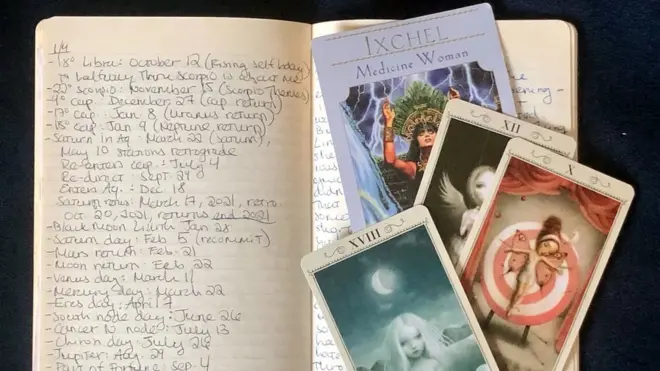 1/4
- 18° Libra: October 12 (Rising self today)
→ halfway thru Scorpio is adjust me
- 22° Scorpio: November 15 (Scorpio Themes)
- 9° cap: December 27 (cap return)
- 17° cap: Jan 8 (Uranus return)
- 18° cap: Jan 9 (Neptune return)
- Saturn in Aq: March 22 (Saturn),
May 10 stations retrograde
Re-enters cap: July 4
Re-direct: Sept 29
Enters Aq.: Dec 18
Saturn: March 17, 2021, retro.
Oct 20, 2021, returns end 2021
- Black Moon Lilith Jan 28
- Saturn day: Feb 5 (recommit)
- Mars return: Feb. 21
- Moon return: Feb 22
- Venus day: March 11
- Mercury day: March 22
- Eros day: April 7
- South node day: June 26
- Cancer N node: July 13
- Chiron day: July 26
- Jupiter: Aug. 29
- Part of Fortune: Sep. 4
IXCHEL
Medicine Woman
XII
X
XVIII